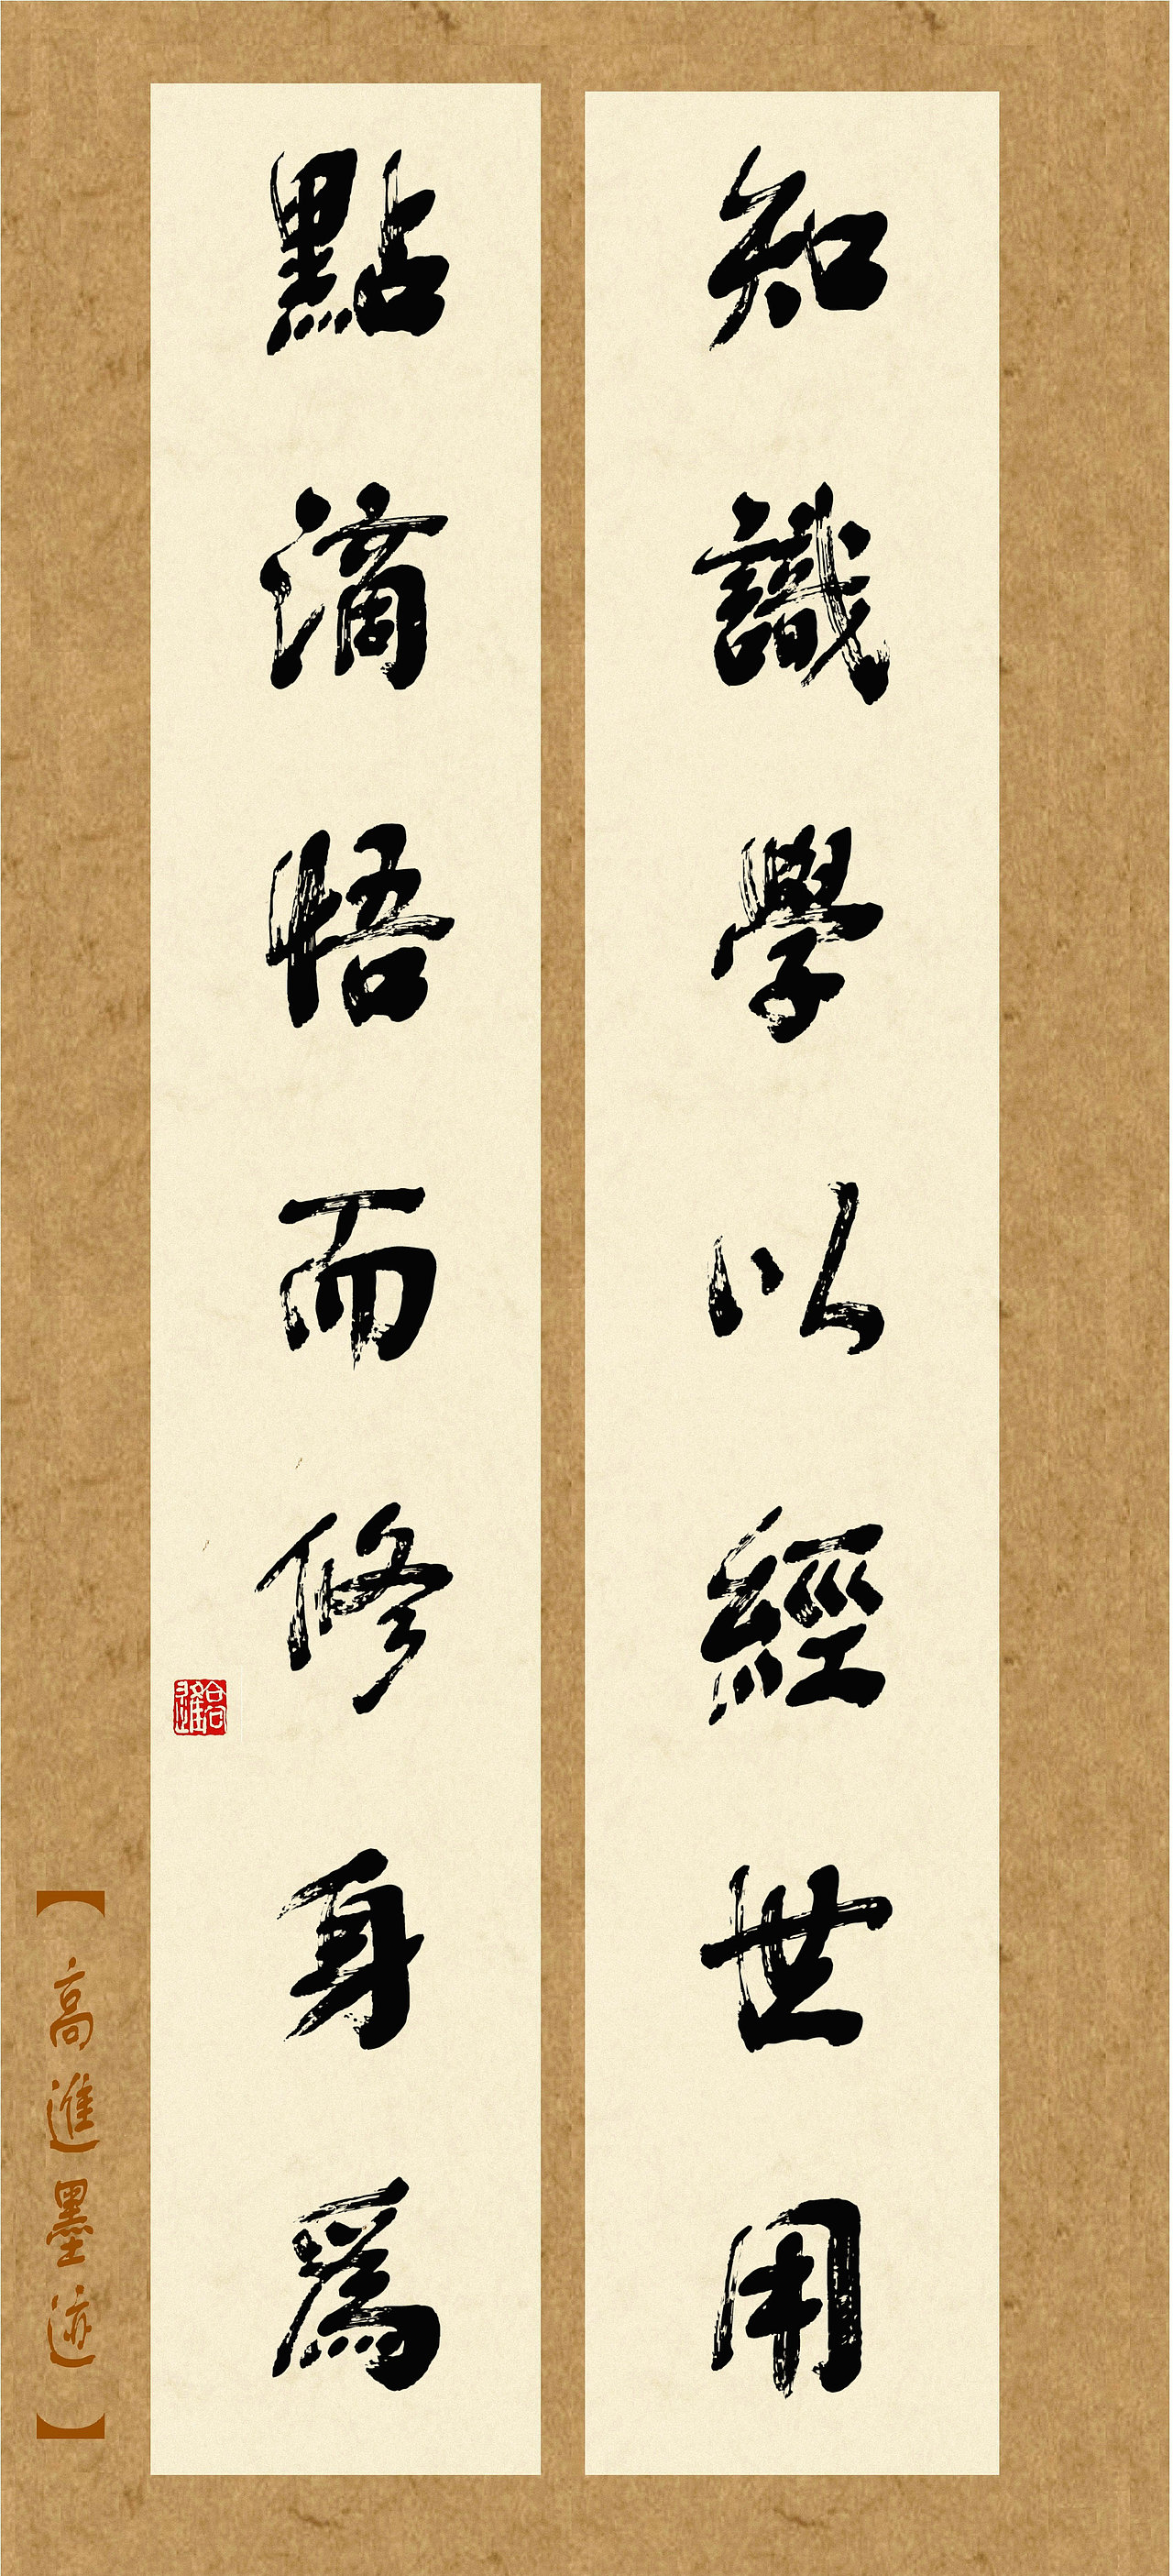 知識學以經世用
點滴悟而修身爲
【高進墨迹】